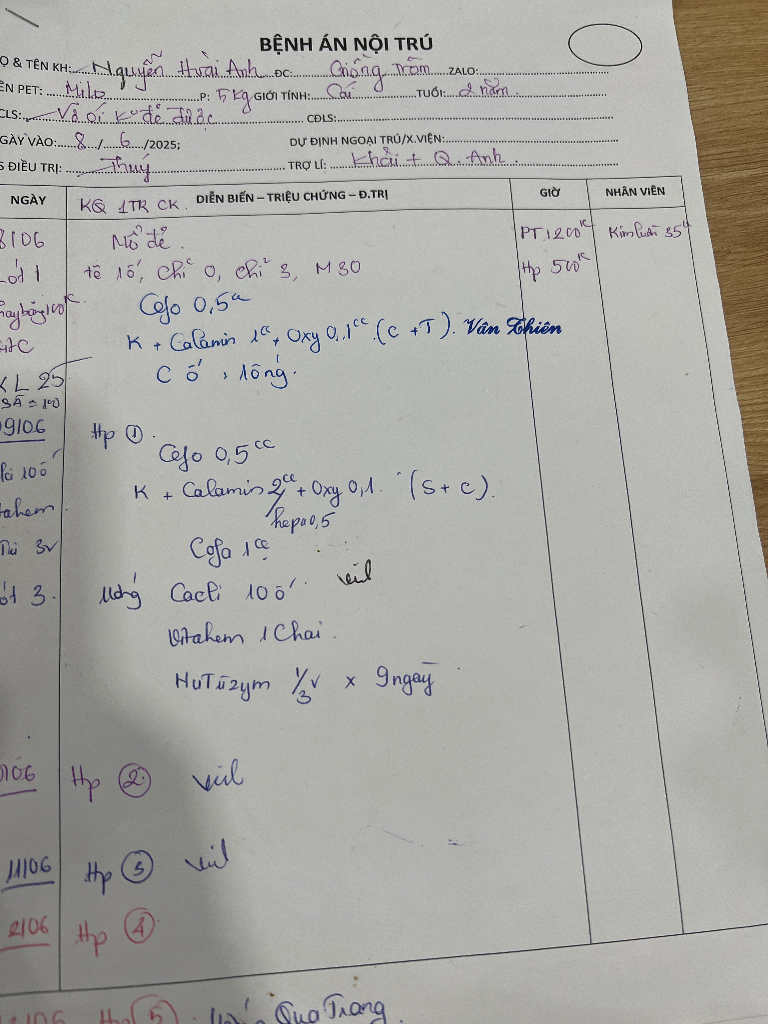 BỆNH ÁN NỘI TRÚ
Ọ & TÊN KH: Nguyễn Hoài Anh ĐC: Giồng Trôm ZALO:
ÊN PET: Milo P: 5 Kg GIỚI TÍNH: Cái TUỔI: 2 năm
CLS: Vỡ ối Ko đẻ được CĐLS:
GÀY VÀO: 8 / 6 /2025; DỰ ĐỊNH NGOẠI TRÚ/X.VIỆN:
S ĐIỀU TRỊ: Thuý TRỢ LÍ: Khải + Q. Anh.
NGÀY KQ 1TR CK. DIỄN BIẾN – TRIỆU CHỨNG – Đ.TRỊ GIỜ NHÂN VIÊN
8/06 Mổ đẻ. PT 1200K 35
ót 1 tê 10 ố, chỉ 0, chỉ 3, M 30 Hp 500K
Cefo 0,5
K + Calamin 1 + Oxy 0,1cc (C + T). Văn Thiên
C ố, 1 ống.
L 25
09/06 Hp 1.
Cefo 0,5cc
10 ố K + Calamin 2cc + Oxy 0,1. (S + C).
hepa 0,5
3v Cofa 1cc
ót 3. Uống Cacli 10 ố
Vitahem 1 Chai.
NuTrizym 1/3 v x 9 ngày
/06 Hp 2
11/06 Hp 3
2/06 Hp 4
/06 Hp 5 Qua Trang.